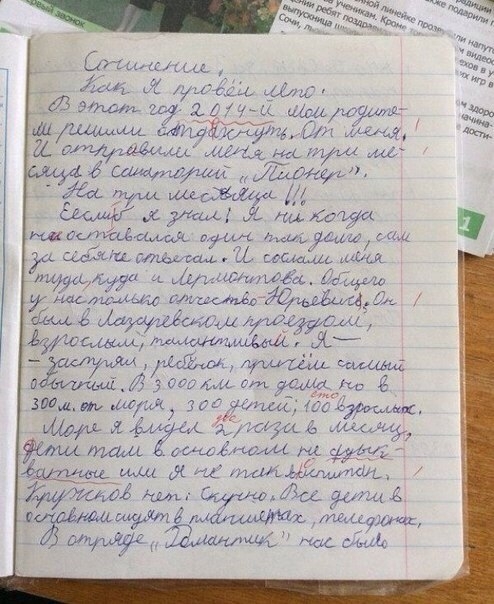 Сочинение.
Как я провёл лето.
В этот год 2014-й мои родите-
ли решили отдахнуть. От меня.
И отправили меня на три ме-
сяца в санаторий „Пионер".
На три месяца!!!
Если б я знал! Я ни когда
не оставался один так долго, сам
за себя не отвечал. И сослали меня
туда, куда и Лермонтова. Общего
у нас только отчество Юрьевич. Он
был в Лазаревском проездом,
взрослый, талантливый. Я-
- застрял, ребёнок, причём самый
обычный. В 3000 км от дома но в
300 м. от моря, 300 детей, 100 взрослых.
сто
Море я видел 2 раза в месяц,
два
дети там в основном не адык-
ватные или я не так воспитан.
Кружков нет: Скучно. Все дети в
основном сидят в планшетах, телефонах.
В отряде „Романтик" нас было
ервый звонок
1